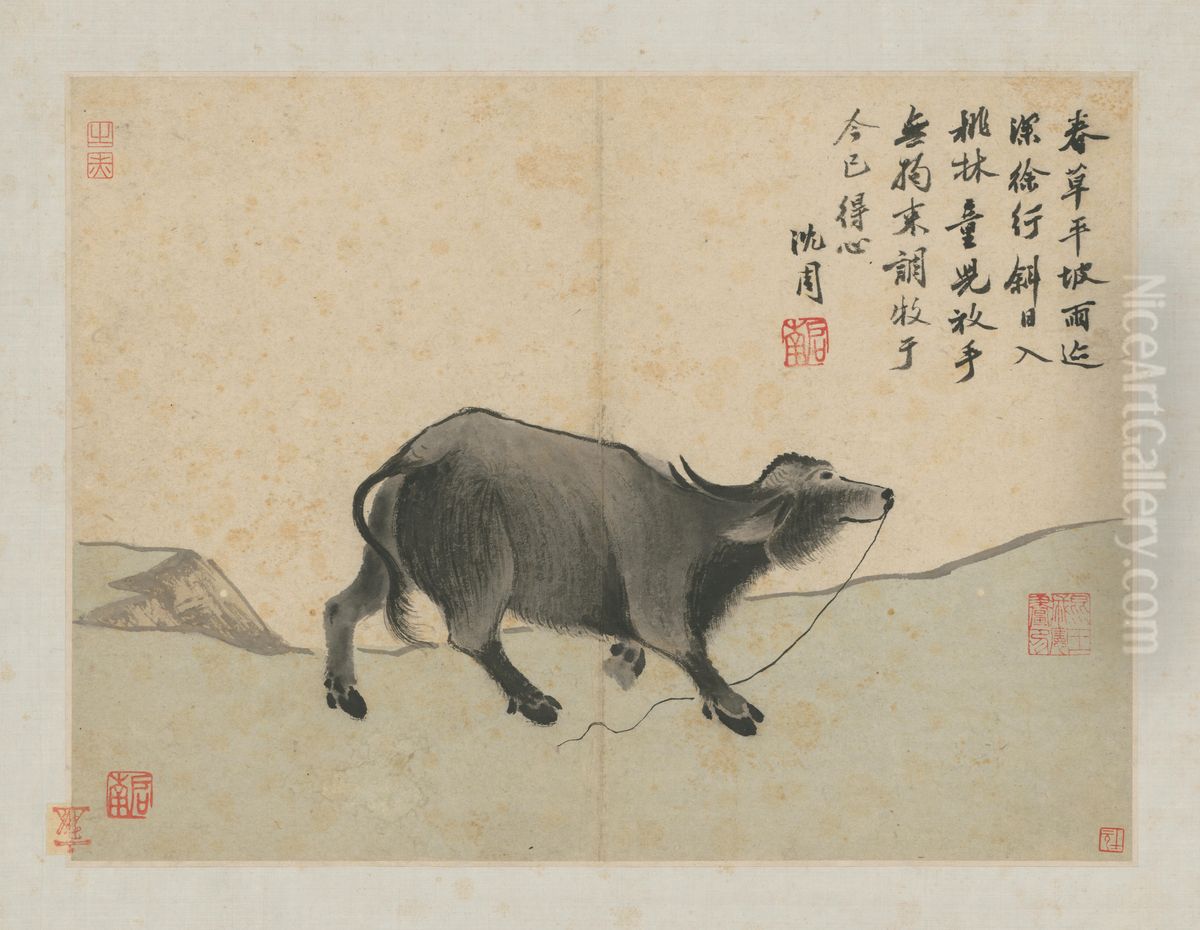 春草平坡雨迹
深徐行斜日入
桃林童児放手
無拘束調牧于
今已得心
沈周
啟南
啟南
NiceArtGallery.com